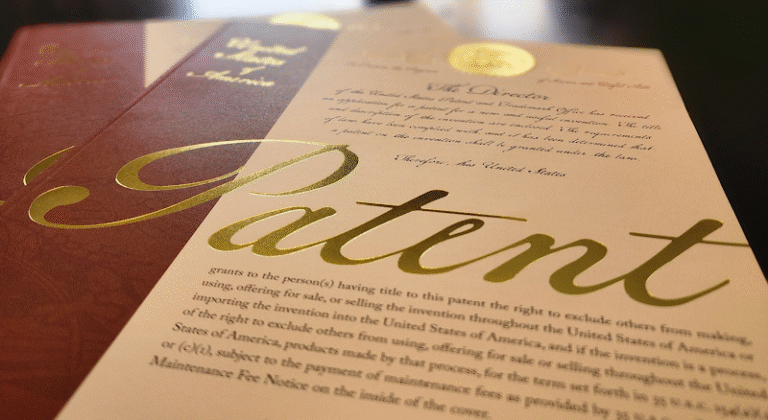 United
States
of
America
The Director
of the United States Patent and Trademark Office has received
an application for a patent for a new and useful invention. The title
and description of the invention are enclosed. The requirements
of law have been complied with, and it has been determined that
a patent on the invention shall be granted under the law.
Therefore, this United States
Patent
grants to the person(s) having title to this patent the right to exclude others from making,
using, offering for sale, or selling the invention throughout the United States of America or
importing the invention into the United States of America, and if the invention is a process,
of the right to exclude others from using, offering for sale or selling throughout the United
States of America, products made by that process, for the term set forth in 35 U.S.C.
or (c)(1), subject to the payment of maintenance fees as provided by 35
Maintenance Fee Notice on the inside of the cover.